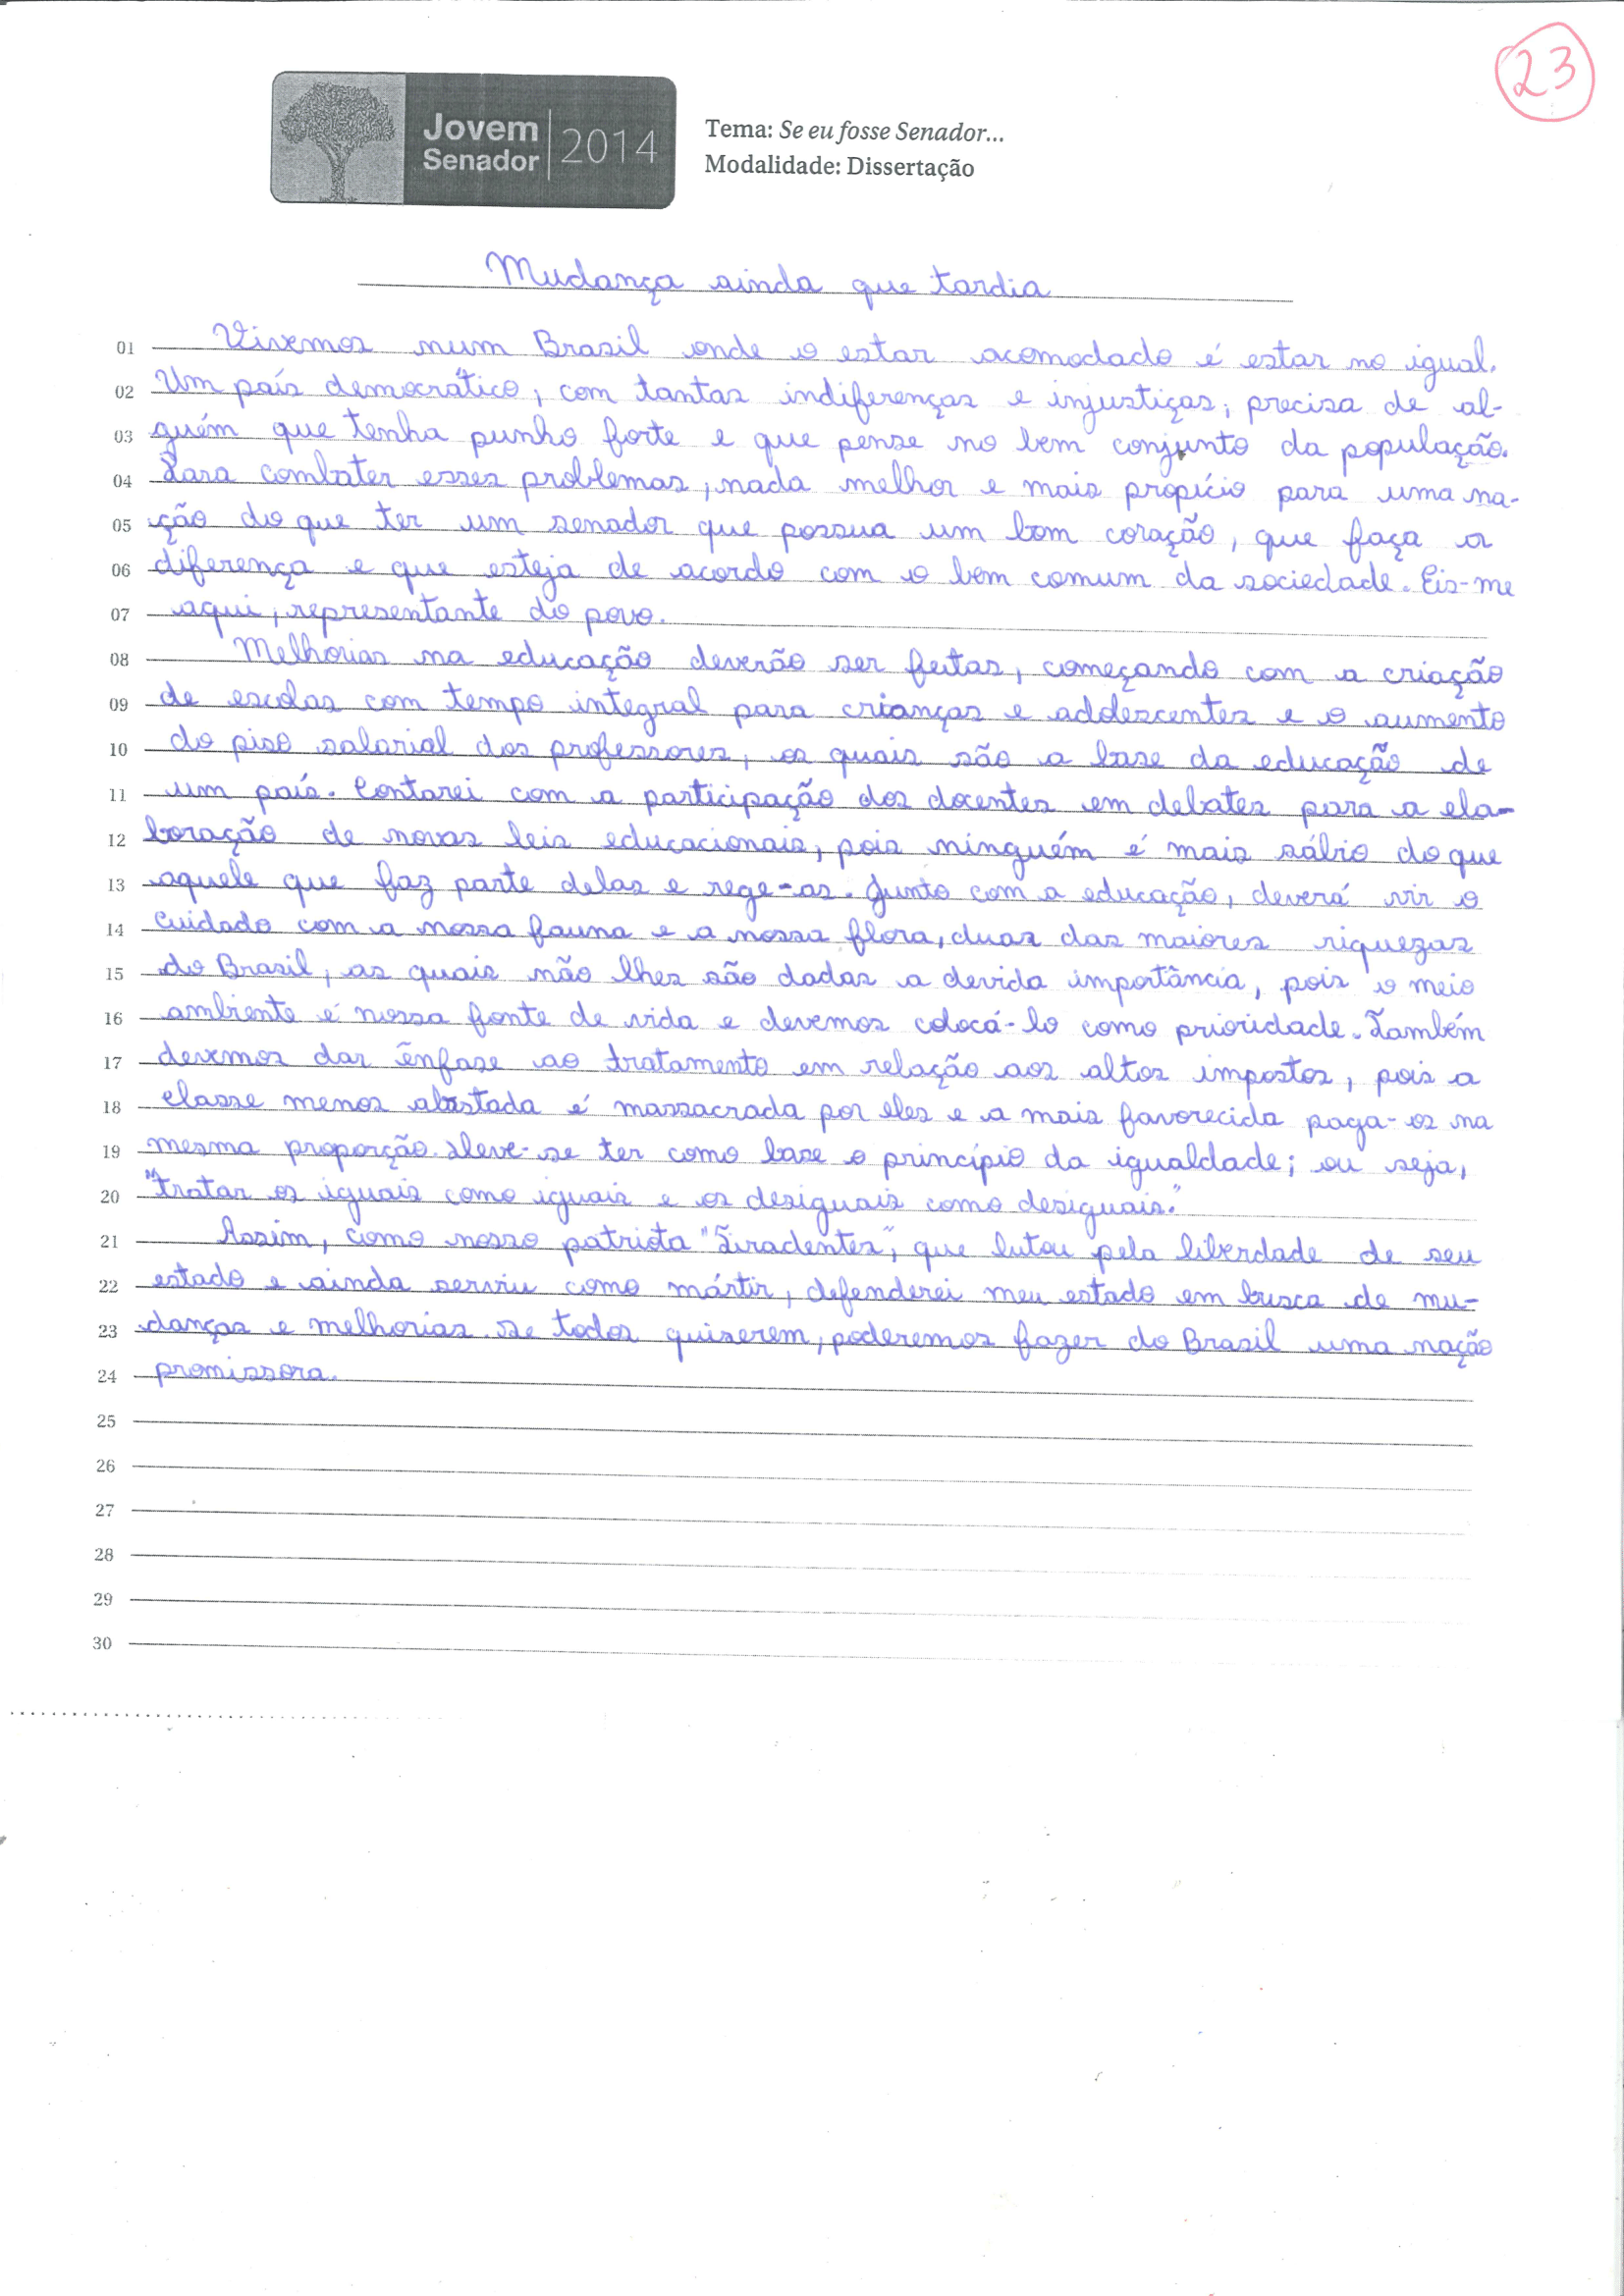 23
Jovem
Senador
2014
Tema: Se eu fosse Senador...
Modalidade: Dissertação
Mudança ainda que tardia
01 Vivemos num Brasil onde o estar acomodado é estar no igual.
02 Um país democrático, com tantas indiferenças e injustiças, precisa de al-
03 guém que tenha punho forte e que pense no bem conjunto da população.
04 Para combater esses problemas, nada melhor e mais propício para uma na-
05 ção do que ter um senador que possua um bom coração, que faça a
06 diferença e que esteja de acordo com o bem comum da sociedade. Eis-me
07 aqui, representante do povo.
08 Melhorias na educação deverão ser feitas, começando com a criação
09 de escolas com tempo integral para crianças e adolescentes e o aumento
10 do piso salarial dos professores, os quais são a base da educação de
11 um país. Contarei com a participação dos docentes em debates para a ela-
12 boração de novas leis educacionais, pois ninguém é mais sábio do que
13 aquele que faz parte delas e rege-as. Junto com a educação, deverá vir o
14 cuidado com a nossa fauna e a nossa flora, duas das maiores riquezas
15 do Brasil, as quais não lhes são dadas a devida importância, pois o meio
16 ambiente é nossa fonte de vida e devemos colocá-lo como prioridade. Também
17 devemos dar ênfase ao tratamento em relação aos altos impostos, pois a
18 classe menos abastada é massacrada por eles e a mais favorecida paga-os na
19 mesma proporção. Deve-se ter como base o princípio da igualdade; ou seja,
20 "tratar os iguais como iguais e os desiguais como desiguais."
21 Assim, como nosso patriota "Tiradentes", que lutou pela liberdade de seu
22 estado e ainda serviu como mártir, defenderei meu estado em busca de mu-
23 danças e melhorias. Se todos quiserem, poderemos fazer do Brasil uma nação
24 promissora.
25
26
27
28
29
30